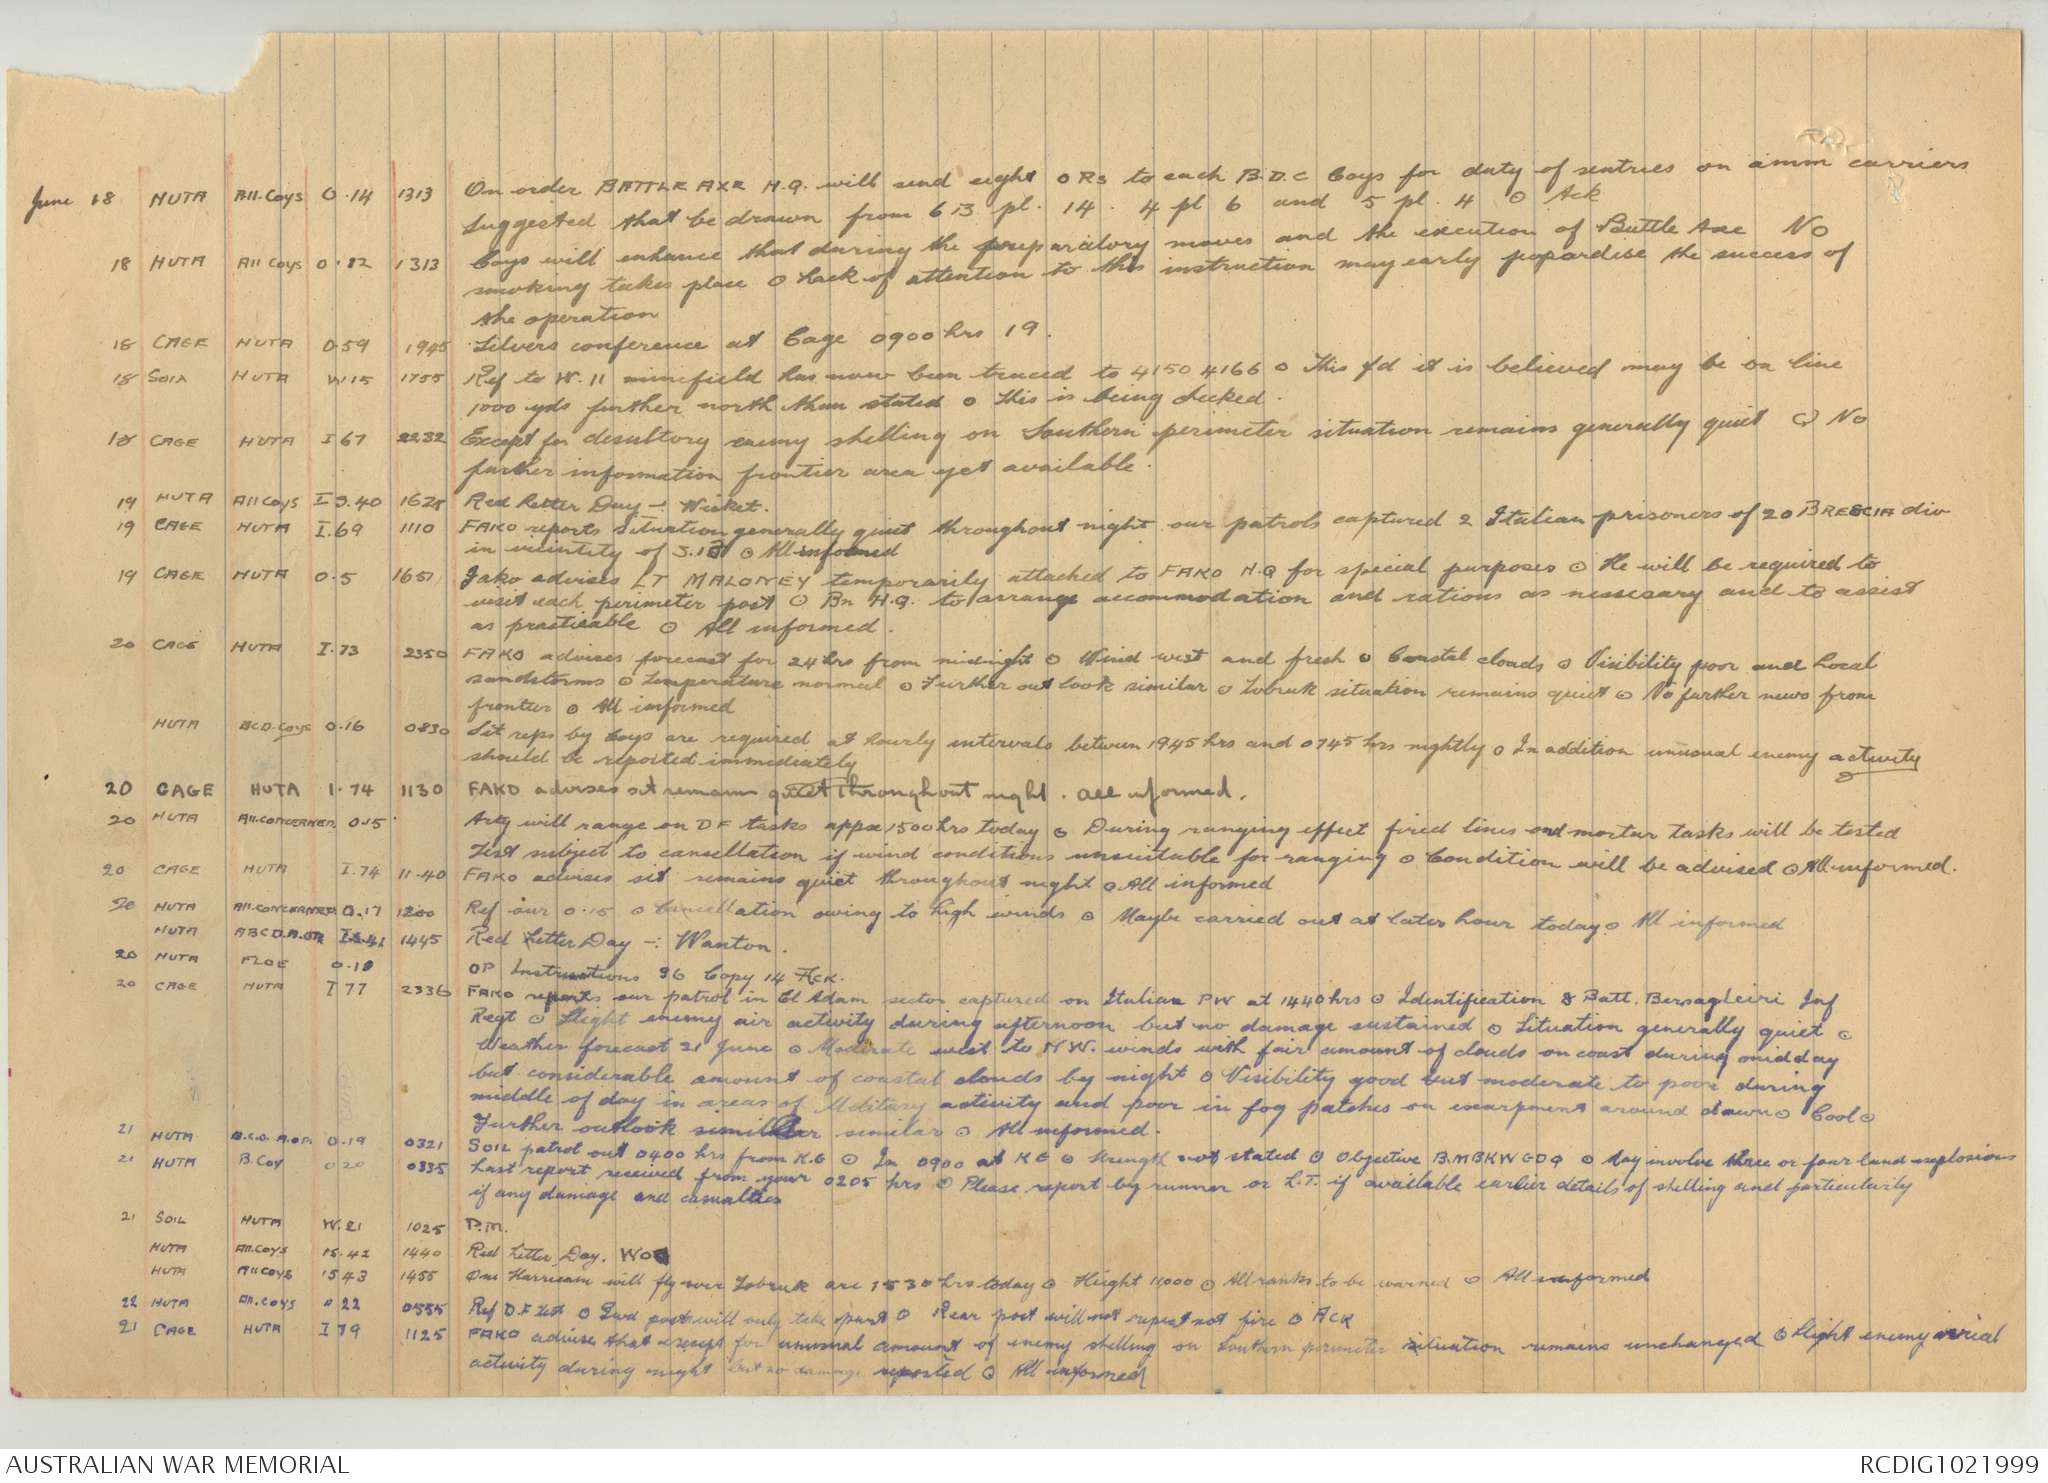 June 18 HUTA All.Coys O.14 1313 On order BATTLE AXE H.Q. will send eight ORs to each B.D.C Coys for duty of sentries on amm carriers
Suggested that be drawn from 6 13 pl. 14. 4 pl 6 and 5 pl. 4 ⊙ Ack
18 HUTA All Coys O.12 1313 Coys will enhance that during the preparatory moves and the execution of Battle Axe No
smoking takes place ⊙ Lack of attention to this instruction may early jeopardise the success of
the operation
18 CAGE HUTA O.59 1945 Silvers conference at Cage 0900 hrs 19.
18 SOIL HUTA W15 1755 Ref to W.11 minefield has now been traced to 4150 4166 ⊙ This f'd it is believed may be on line
1000 yds further north than stated ⊙ This is being checked.
18 CAGE HUTA I 67 2232 Except for desultory enemy shelling on Southern perimeter situation remains generally quiet ⊙ No
further information frontier area yet available.
19 HUTA All Coys I S.40 1625 Red Letter Day -: Wicket.
19 CAGE HUTA I.69 1110 FAKO reports situation generally quiet throughout night our patrols captured 2 Italian prisoners of 20 BRESCIA div
in vicintity of S.13 ⊙ All informed
19 CAGE HUTA O.5 1651 Fako advises LT MALONEY temporarily attached to FAKO H.Q for special purposes ⊙ He will be required to
visit each perimeter post ⊙ Bn H.Q. to arrange accommodation and rations as nessesary and to assist
as practicable ⊙ All informed.
20 CAGE HUTA I.73 2350 FAKO advises forecast for 24 hrs from midnight ⊙ Wind west and fresh ⊙ Coastal clouds ⊙ Visibility poor and local
sandstorms ⊙ Temperature normal ⊙ Further out look similar ⊙ Tobruk situation remains quiet ⊙ No further news from
frontier ⊙ All informed
HUTA BCD.Coys O.16 0830 Sit reps by Coys are required at hourly intervals between 1945 hrs and 0745 hrs nightly ⊙ In addition unusual enemy activity
should be reported immediately
20 CAGE HUTA I.74 1130 FAKO advises sit remains quiet throughout night. All informed.
20 HUTA All.CONCERNED O.15 Arty will range on DF tasks appx 1500 hrs today ⊙ During ranging effect fired lines and mortar tasks will be tested
Test subject to cancellation if wind conditions unsuitable for ranging ⊙ Condition will be advised ⊙ All informed.
20 CAGE HUTA I.74 11.40 FAKO advises sit remains quiet throughout night ⊙ All informed
20 HUTA All.CONCERNED O.17 1200 Ref our O.15 ⊙ Cancellation owing to high winds ⊙ Maybe carried out at later hour today ⊙ All informed
HUTA I.S.41 1445 Red Letter Day -: Wanton.
20 HUTA FLOE O.18 OP Instructions 36 Copy 14 Ack.
20 CAGE HUTA I 77 2336 FAKO reports our patrol in El Adam sector captured on Italian PW at 1440 hrs ⊙ Identification 8 Batt. Bersagleiri Inf
Regt ⊙ Slight enemy air activity during afternoon but no damage sustained ⊙ Situation generally quiet ⊙
Weather forecast 21 June ⊙ Moderate west to N.W. winds with fair amount of clouds on coast during midday
but considerable amount of coastal clouds by night ⊙ Visibility good but moderate to poor during
middle of day in areas of Military activity and poor in fog patches on escarpment around dawn ⊙ Cool ⊙
Further outlook similar similar ⊙ All informed.
21 HUTA B.C.D. A.OP. O.19 0321 SOIL patrol out 0400 hrs from K.6 ⊙ In 0900 at K6 ⊙ Strength not stated ⊙ Objective BMBKWGDQ ⊙ May involve three or four land explosions
21 HUTA B.Coy O 20 0335 Last report received from your 0205 hrs ⊙ Please report by runner or L.T. if available earlier details of shelling and particularity
if any damage and casualties
21 SOIL HUTA W.21 1025 P.M.
HUTA All.Coys IS.42 1440 Red Letter Day.
HUTA All Coys IS 43 1455 One Hurricane will fly over Tobruk are 1530 hrs today ⊙ Height 11000 ⊙ All ranks to be warned ⊙ All informed
22 HUTA All.Coys O 22 0555 Ref D.F Test ⊙ Fwd posts will only take part ⊙ Rear post will not repeat not fire ⊙ Ack
21 CAGE HUTA I 79 1125 FAKO advise that except for unusual amount of enemy shelling on Southern perimeter situation remains unchanged ⊙ Slight enemy aerial
activity during night but no damage reported ⊙ All informed
AUSTRALIAN WAR MEMORIAL
RCDIG1021999